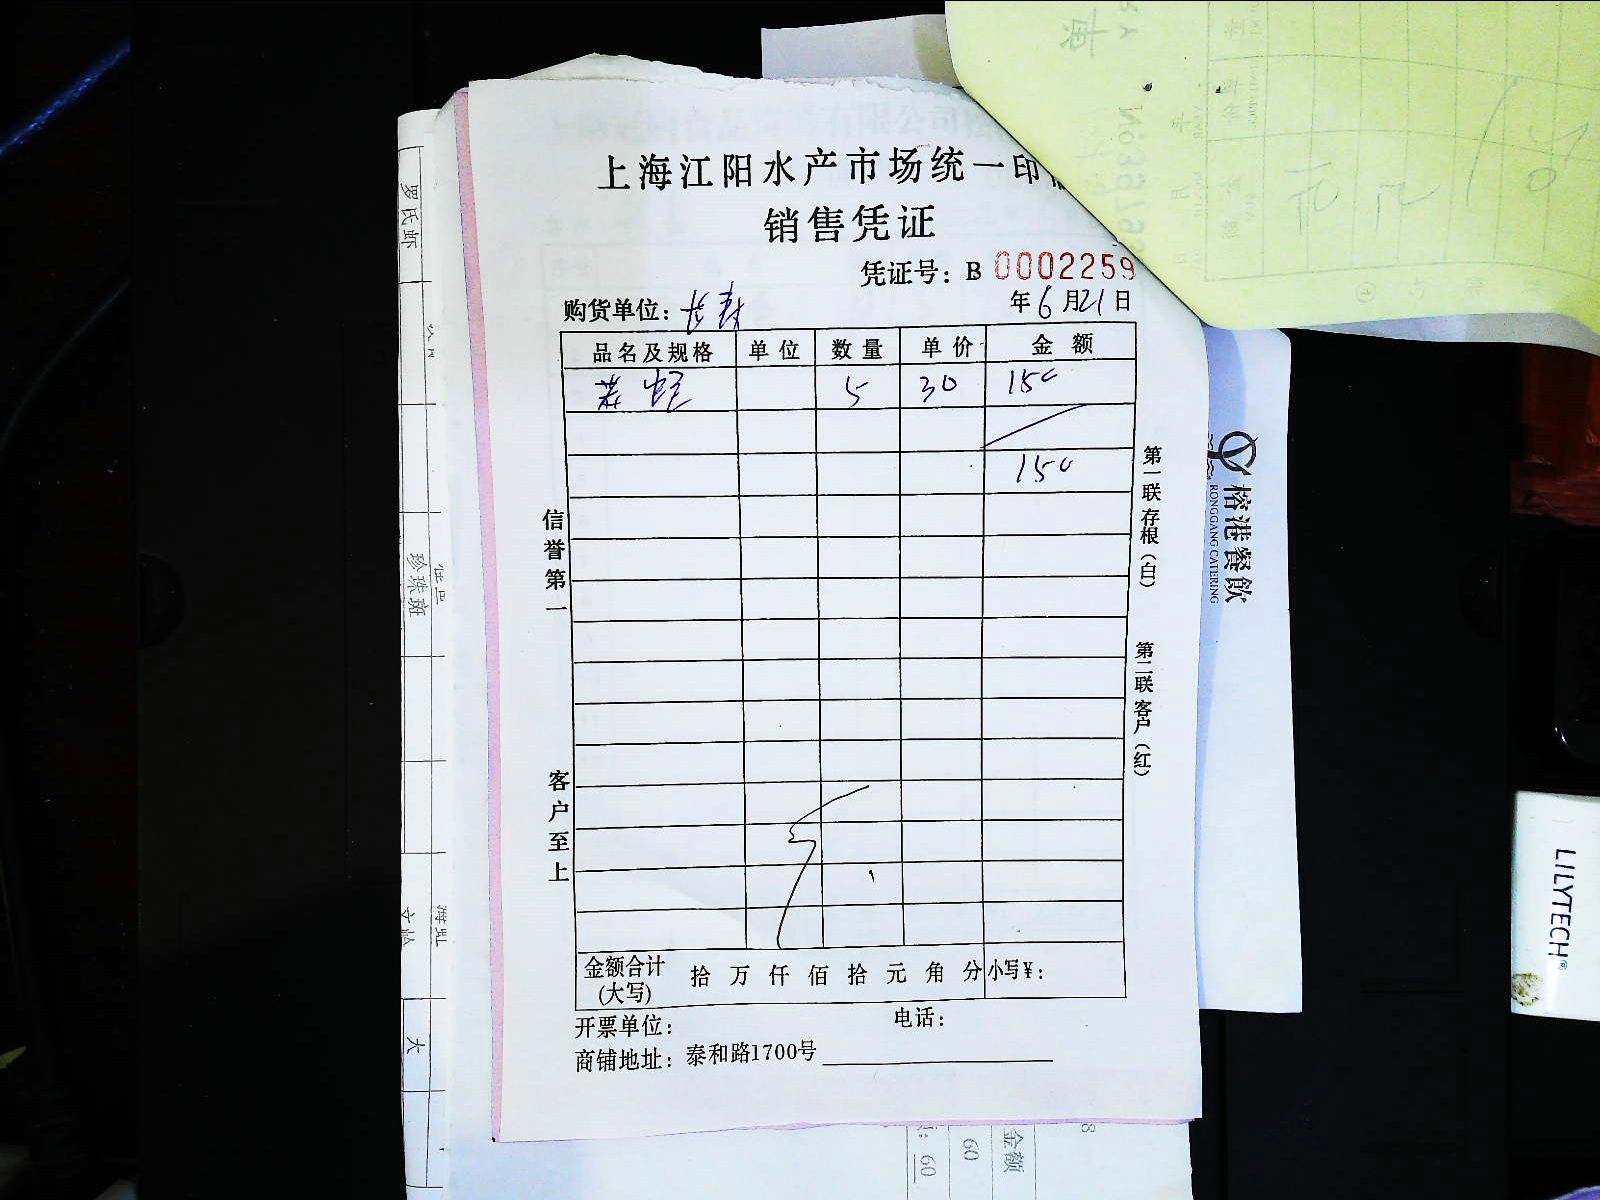 上海江阳水产市场统一印
销售凭证
凭证号：B 0002259
购货单位：
年6月21日
品名及规格 单位 数量 单价 金额
5 30 150
150
信誉第一
客户至上
第一联存根（白）
第二联客户（红）
金额合计(大写) 拾 万 仟 佰 拾 元 角 分 小写¥：
开票单位： 电话：
商铺地址：泰和路1700号
罗氏虾
珍珠斑
大
榕港餐飲
RONGGANG CATERING
LILYTECH®
金额
60
60
8